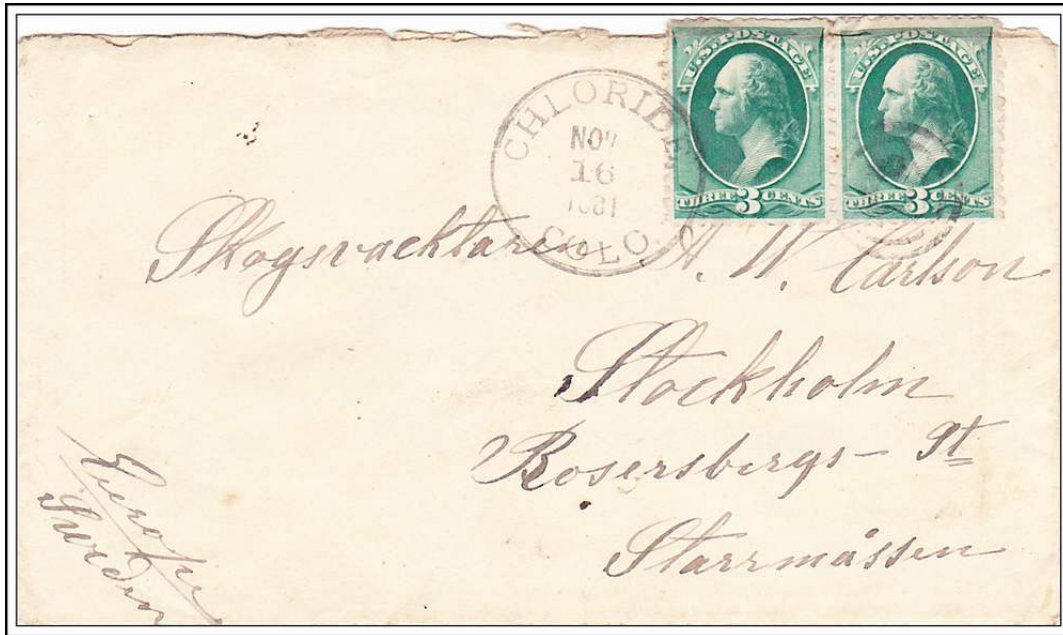 U.S. POSTAGE
THREE 3 CENTS
U.S. POSTAGE
THREE 3 CENTS
CHLORIDE,
NOV
16
1881
COLO.
Skogsvacktaren A. W. Carlson
Stockholm
Rosersbergs - St
Starrmåssen
Europe
Sweden